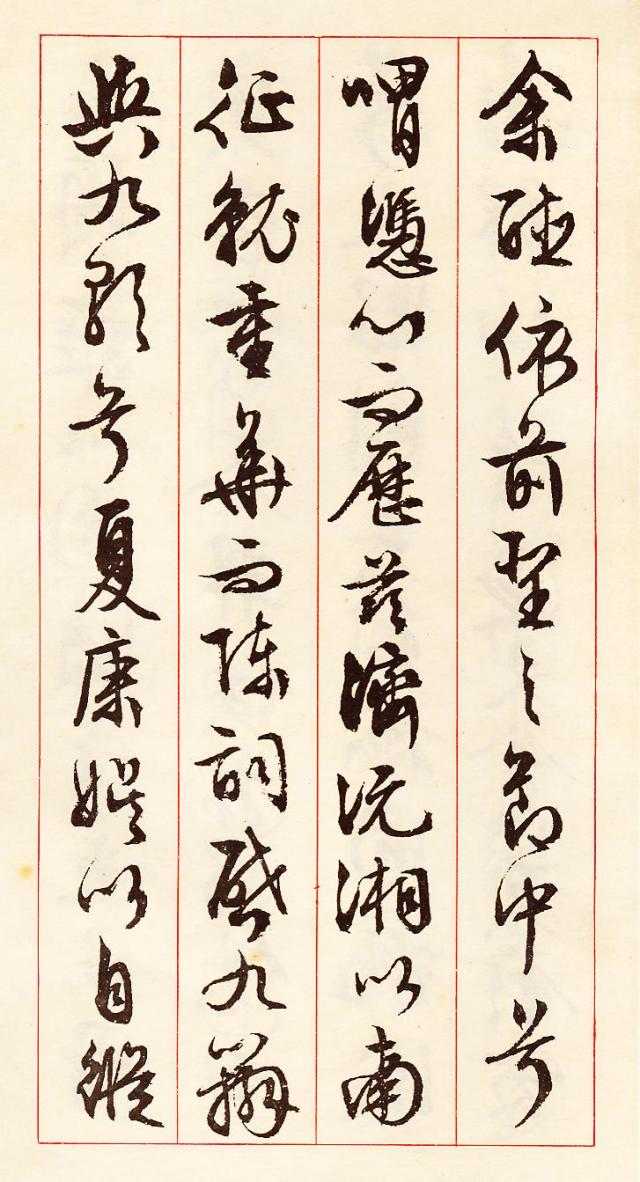 余聽依前聖之節中兮
喟憑心而歷茲濟沅湘以南
征就重華而陳詞啟九辯
與九歌兮夏康娛以自縱